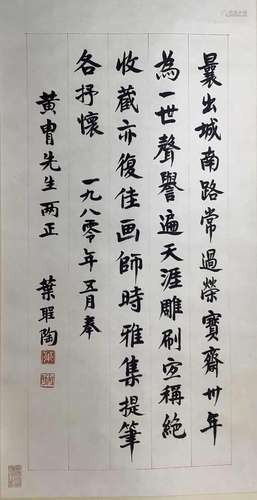 曩出城南路常過榮寶齋卅年
為一世聲譽遍天涯雕刷宏稱絶
收藏亦復佳画師時雅集提筆
各抒懷 一九八零年五月奉
黄胄先生两正
葉聖陶